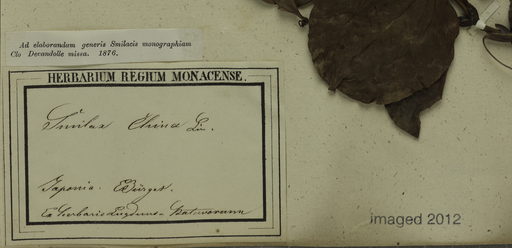 Ad elaborandum generis Smilacis monographiam
Clo Decandolle missa. 1876.
HERBARIUM REGIUM MONACENSE.
Smilax China Lin.
Japonia. Bürger.
Ex herbario Lugduno-Batavorum
imaged 2012